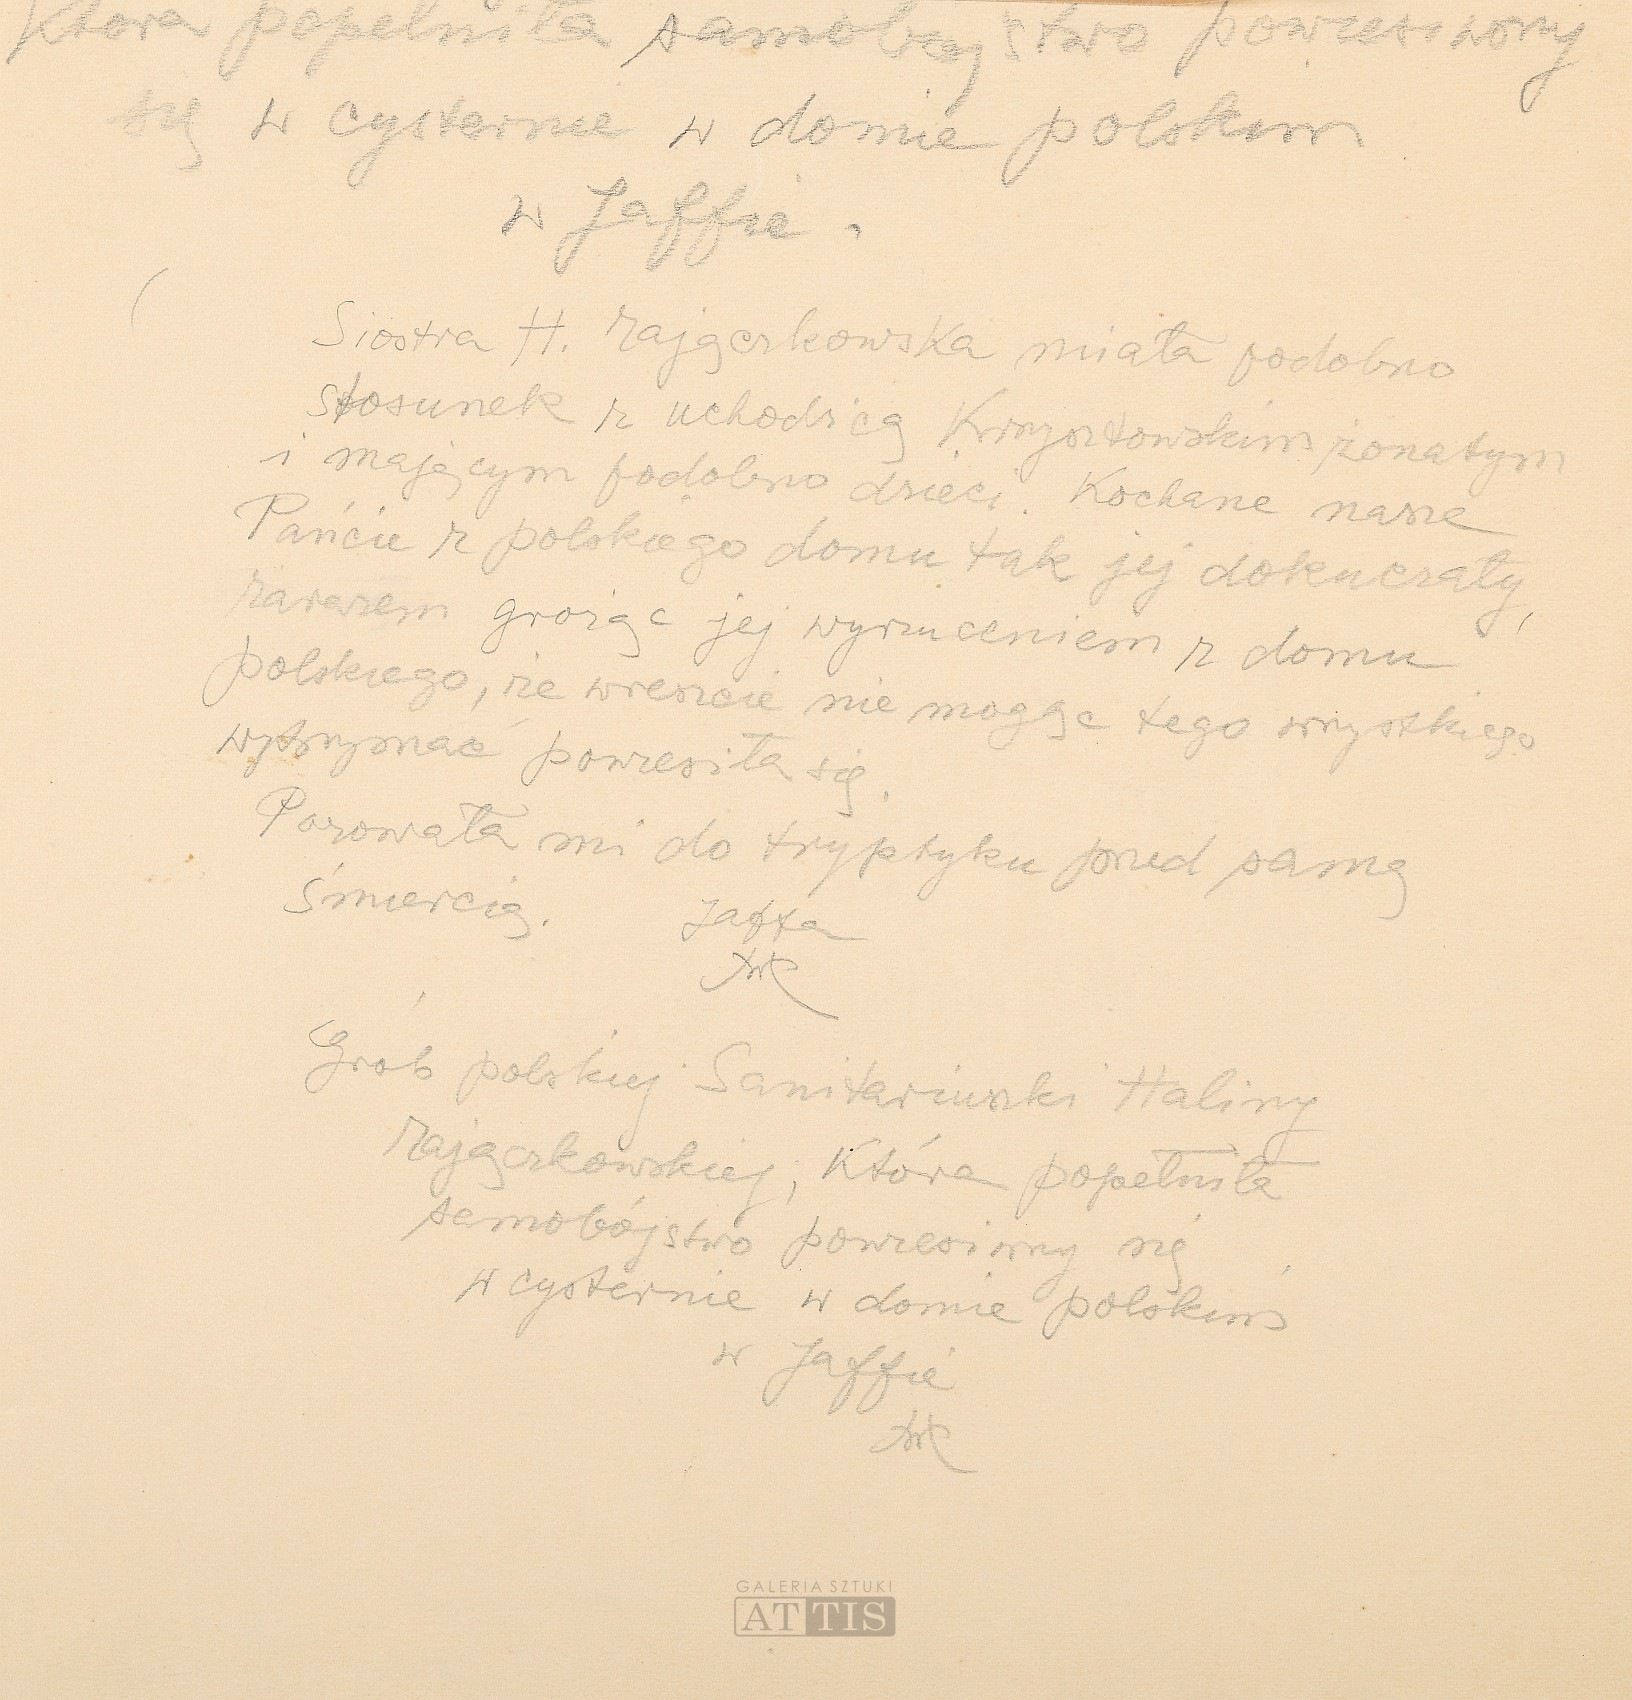 która popełniła samobójstwo powiesiwszy
się w cysternie w domie polskim
w Jaffie.
Siostra H. Zajączkowska miała podobno
stosunek z uchodźcą Krzysztowskim żonatym
i mającym podobno dzieci. Kochane nasze
Pańcie z polskiego domu tak jej dokuczały,
zarazem grożąc jej wyrzuceniem z domu
polskiego, że wreszcie nie mogąc tego wszystkiego
wytrzymać powiesiła się.
Pozowała mi do tryptyku przed samą
śmiercią. Jaffa
Grób polskiej Sanitariuszki Haliny
Zajączkowskiej, która popełniła
samobójstwo powiesiwszy się
w cysternie w domie polskim
w Jaffie
GALERIA SZTUKI
ATTIS